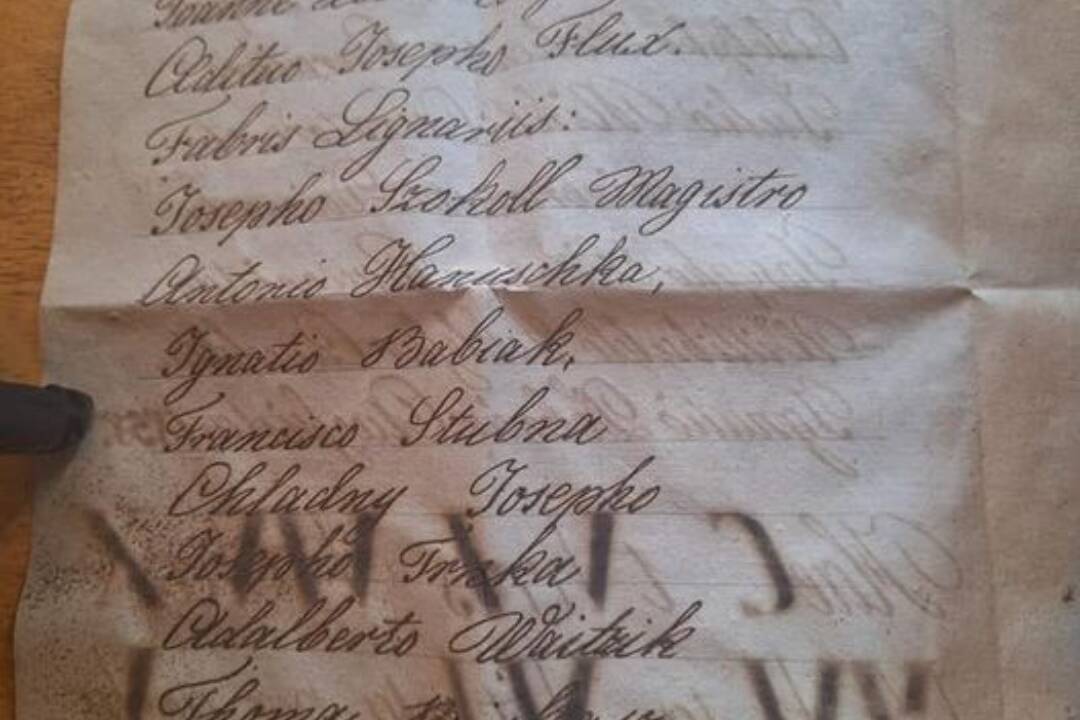 Joanne
Aedituo Josepho Flux.
Fabris Lignariis:
Josepho Szokoll Magistro
Antonio Hanuschka,
Ignatio Babiak,
Francisco Stubna
Chladny Josepho
Josepho Trnka
Adalberto Waitzik
Thoma